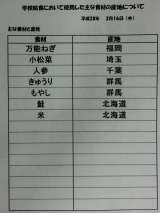 学校給食において使用した主な食材の産地について
平成28年 2月16日（火）
主な食材と産地
食材 産地
万能ねぎ 福岡
小松菜 埼玉
人参 千葉
きゅうり 群馬
もやし 群馬
鮭 北海道
米 北海道